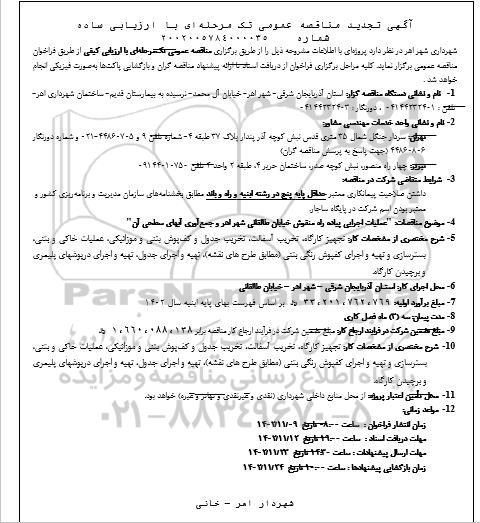 آگهی تجدید مناقصه عمومی تک مرحله‌ای با ارزیابی ساده
شماره ۲۰۰۲۰۰۵۷۸۴۰۰۰۰۳۵
شهرداری شهر اهر در نظر دارد پروژه‌ای با اطلاعات مشروحه ذیل را از طریق برگزاری مناقصه عمومی تک‌مرحله‌ای با ارزیابی کیفی از طریق فراخوان
مناقصه عمومی برگزار نماید. کلیه مراحل برگزاری فراخوان از دریافت اسناد تا ارائه پیشنهاد مناقصه گران و بازگشایی پاکت‌ها به‌صورت فیزیکی انجام
خواهد شد.
1- نام و نشانی دستگاه مناقصه گزار: استان آذربایجان شرقی- شهر اهر- خیابان آل محمد- نرسیده به بیمارستان قدیم- ساختمان شهرداری اهر-
تلفن : ۱-۰۴۱۴۴۲۳۲۴ ، دورنگار : ۳-۰۴۱۴۴۲۳۲۴
2- نام و نشانی واحد خدمات مهندسی مشاور:
تهران: سردار جنگل شمال ۳۵ متری قدس نبش کوچه آذر پندار پلاک ۳۷ طبقه ۴- شماره تلفن ۹ و ۵-۴۴۸۶۰۷۰-۰۲۱ و شماره دورنگار
۴۴۸۶۰۸۰۶ (جهت پاسخ به پرسش مناقصه گران)
تبریز: چهار راه منصور، نبش کوچه صدر، ساختمان حریر ۴، طبقه ۲ واحد ۴ تلفن
3- شرایط متقاضی شرکت در مناقصه:
داشتن صلاحیت پیمانکاری معتبر حداقل پایه پنج در رشته ابنیه و راه و باند مطابق بخشنامه‌های سازمان مدیریت و برنامه‌ریزی کشور و
معتبر بودن اسم شرکت در پایگاه ساجار.
4- موضوع مناقصات: "عملیات اجرایی پیاده راه منقوش خیابان طالقانی شهر اهر و جمع‌آوری آبهای سطحی آن"
5- شرح مختصری از مشخصات کار: تجهیز کارگاه، تخریب آسفالت، تخریب جدول و کف‌پوش بتنی و موزائیکی، عملیات خاکی و بتنی،
بسترسازی و تهیه و اجرای کفپوش رنگی بتنی (مطابق طرح های نقشه)، تهیه و اجرای جدول، تهیه و اجرای درپوشهای پلیمری
و برچیدن کارگاه.
6- محل اجرای کار: استان آذربایجان شرقی – شهر اهر – خیابان طالقانی
7- مبلغ برآورد اولیه: ۳۳،۲۰۱،۷۶۲،۷۶۹ بر اساس فهرست بهای پایه ابنیه سال ۱۴۰۲
8- مدت پیمان: سه (۳) ماه فصل کاری
9- مبلغ تضمین شرکت در فرایند ارجاع کار: مبلغ تضمین شرکت در فرآیند ارجاع کار مناقصه برابر ۱،۶۶۰،۰۸۸،۱۳۸
10- شرح مختصری از مشخصات کار: تجهیز کارگاه، تخریب آسفالت، تخریب جدول و کف‌پوش بتنی و موزائیکی، عملیات خاکی و بتنی،
بسترسازی و تهیه و اجرای کفپوش رنگی بتنی (مطابق طرح های نقشه)، تهیه و اجرای جدول، تهیه و اجرای درپوشهای پلیمری
و برچیدن کارگاه.
11- محل تأمین اعتبار پروژه: از محل منابع داخلی شهرداری (نقدی و غیرنقدی و تهاتر و غیره) خواهد بود.
12- مواعد زمانی:
زمان انتشار فراخوان : ساعت ۸:۰۰ تاریخ ۱۴۰۲/۱۱/۰۹
مهلت دریافت اسناد : ساعت ۱۹:۰۰ تاریخ ۱۴۰۲/۱۱/۱۲
مهلت ارسال پیشنهادات : ساعت تاریخ ۱۴۰۲/۱۱/۲۳
زمان بازگشایی پیشنهادها : ساعت ۱۰:۰۰ تاریخ ۱۴۰۲/۱۱/۲۴
شهردار اهر – خانی
۰۲۱-۸۸۳۴۹۶۷۰-۵